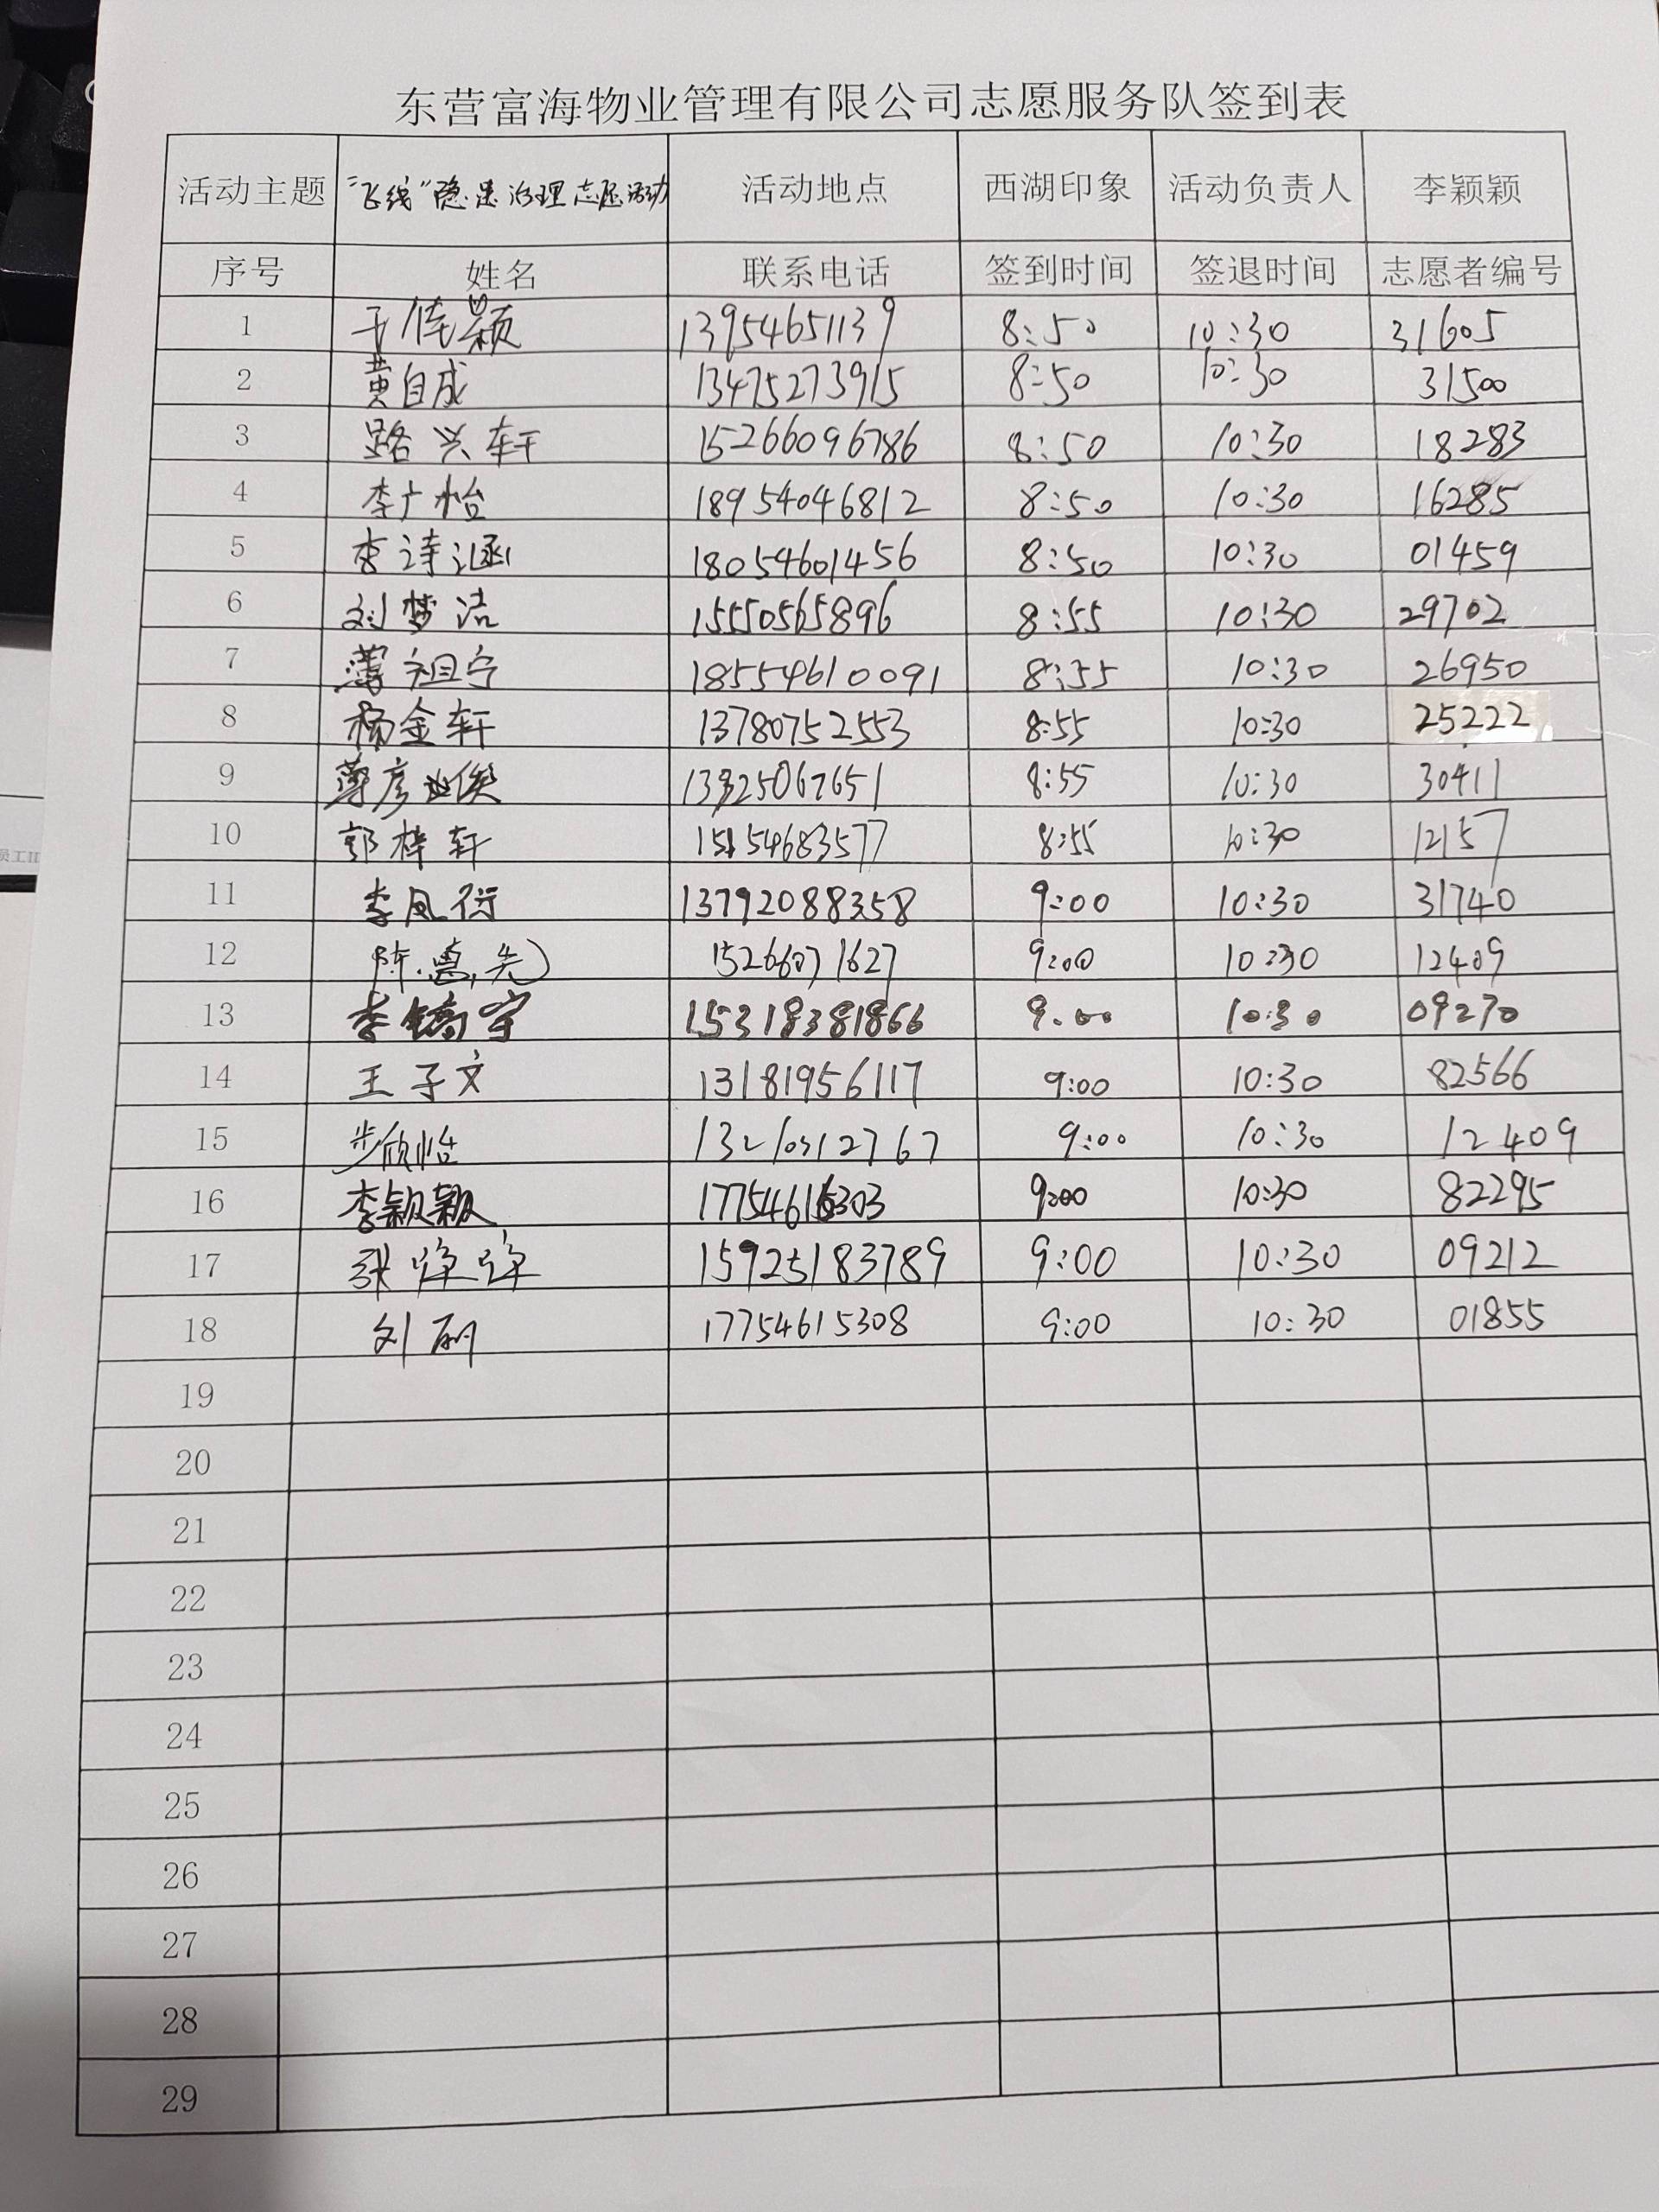 东营富海物业管理有限公司志愿服务队签到表
活动主题 "飞线"隐患治理志愿活动 活动地点 西湖印象 活动负责人 李颖颖
序号 姓名 联系电话 签到时间 签退时间 志愿者编号
1 于佳颖 13954651139 8:50 10:30 31605
2 黄自成 13475273915 8:50 10:30 31500
3 路兴轩 15266096786 8:50 10:30 18283
4 李广怡 18954046812 8:50 10:30 16285
5 李诗涵 18054601456 8:50 10:30 01459
6 刘梦洁 15550565896 8:55 10:30 29702
7 薄祖宁 18554610091 8:55 10:30 26950
8 杨金轩 13780752553 8:55 10:30 25222
9 薄彦 8:55 10:30 30411
10 郭梓轩 15154683577 8:55 10:30 12157
11 李风衍 13792088358 9:00 10:30 31740
12 陈惠先 15266071627 9:00 10:30 12409
13 李镝宇 15318381866 9:00 10:30 09270
14 王子文 13181956117 9:00 10:30 82566
15 步欣怡 9:00 10:30 12409
16 李颖颖 9:00 10:30 82295
17 张峥峥 15925183789 9:00 10:30 09212
18 刘丽 17754615308 9:00 10:30 01855
19
20
21
22
23
24
25
26
27
28
29